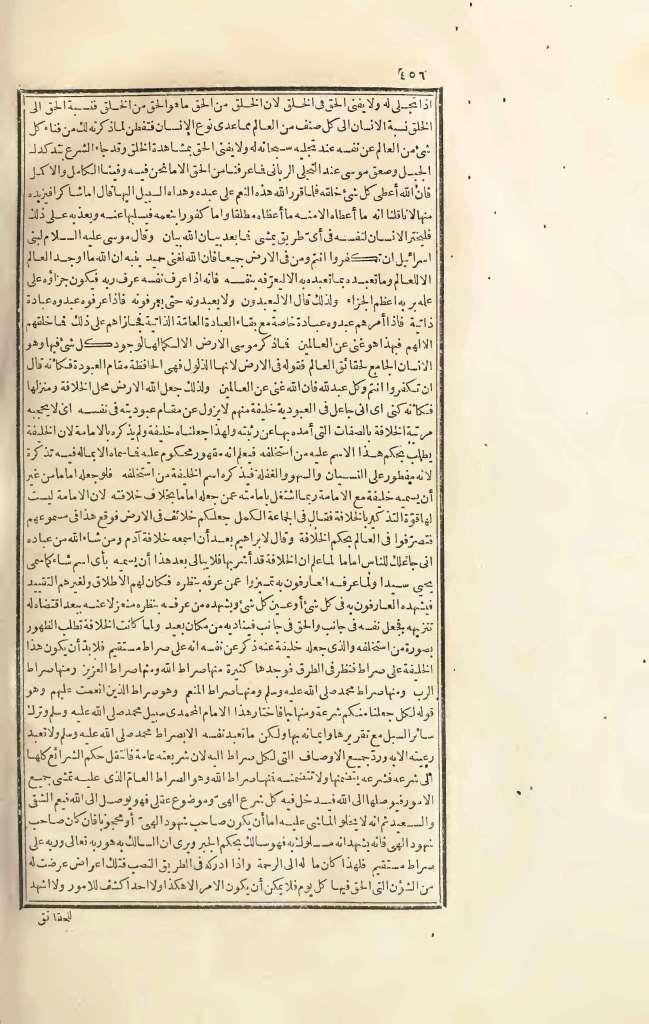 ٤٥٦
اذا تجلى له ولا يفنى الحق فى الخلق لان الخلق من الحق ما هو الحق من الخلق فنسبة الحق الى
الخلق نسبة الانسان الى كل صنف من العالم مما عدى نوع الإنسان فتفطن لما ذكرته لك من فناء كل
شئ من العالم عن نفسه عند تجليه سبحانه له ولا يفنى الحق بمشاهدة الخلق وقد جاء الشرع بتدكدك
الجبل وصعق موسى عند التجلى الربانى فما عرفنا من الحق الا ما نحن فيه وفينا الكامل والاكمل
فان الله أعطى كل شئ خلقه فلما قرر الله هذه النعم على عبده وهداه السبيل اليها قال اما شاكرا فيزيده
منها لانا قلنا انه ما أعطاه الا منه ما أعطاه مطلقا واما كفورا بنعمه فيسلبها عنه ويعذبه على ذلك
فليختر الانسان لنفسه فى أى طريق يمشى فما بعد بيان الله بيان وقال موسى عليه السلام لبنى
اسرائيل ان تكفروا انتم ومن فى الارض جميعا فان الله لغنى حميد ينبه ان الله ما اوجد العالم
الا للعالم وما تعبده بما تعبده به الا ليعرفه بنفسه فانه اذا عرف نفسه عرف ربه فيكون جزاؤه على
علمه بربه اعظم الجزاء ولذلك قال الا ليعبدون ولا يعبدونه حتى يعرفونه فاذا عرفوه عبدوه عبادة
ذاتية فاذا أمرهم عبدوه عبادة خاصة مع بقاء العبادة العامّة الذاتية فجازاهم على ذلك فما خلقهم
الا لهم فبهذا هو غنى عن العالمين فما ذكر موسى الارض الا لكمالها لوجود كل شئ فيها وهو
الانسان الجامع لحقائق العالم فقوله فى الارض لانها الذلول فهى الحافظة مقام العبودة فكانه قال
ان تكفروا انتم وكل عبد لله فان الله غنى عن العالمين ولذلك جعل الله الارض محل الخلافة ومنزلها
فكانه كنى اى انى جاعل فى العبودية خليفة منهم لا يزول عن مقام عبوديته فى نفسه اى لا يحجبه
مرتبة الخلافة بالصفات التى أمده بها عن رتبته ولهذا جعلناه خليفة ولم يذكره بالامامة لان الخليفة
يطلب بحكم هذا الاسم عليه من استخلفه فيعلم انه مقهور محكوم عليه فما سماه الا بما له فيه تذكرة
لانه مفطور على النسيان والسهو والغفلة فيذكره اسم الخليفة من استخلفه فلو جعله اماما من غير
أن يسميه خليفة مع الامامة ربما اشتغل بامامته عمن جعله اماما بخلاف خلافته لان الامامة ليست
لها قوّة التذكير بالخلافة فقال فى الجماعة الكمل جعلكم خلائف فى الارض فوقع هذا فى مسموعهم
فتصرّفوا فى العالم بحكم الخلافة وقال لابراهيم بعد أن اسمعه خلافة آدم ومن شاء الله من عباده
انى جاعلك للناس اماما لما علم ان الخلافة قد أشربها فلا يبالى بعد هذا أن يسميه بأى اسم شاء كما سمى
يحيى سيدا ولما عرفه العارفون به تميزوا عمن عرفه بنظره فكان لهم الاطلاق ولغيرهم التقييد
فيشهده العارفون به فى كل شئ أو عين كل شئ ويشهده من عرفه بنظره منعزلا عنه ببعد اقتضاه له
تنزيهه فجعل نفسه فى جانب والحق فى جانب فيناديه من مكان بعيد ولما كانت الخلافة تطلب الظهور
بصورة من استخلفه والذى جعله خليفة عنه ذكر عن نفسه انه على صراط مستقيم فلا بدّ أن يكون هذا
الخليفة على صراط فنظر فى الطرق فوجدها كثيرة منها صراط الله ومنها صراط العزيز ومنها صراط
الرب ومنها صراط محمد صلى الله عليه وسلم ومنها صراط المنعم وهو صراط الذين انعمت عليهم وهو
قوله لكل جعلنا منكم شرعة ومنهاجا فاختار هذا الامام المحمدى سبيل محمد صلى الله عليه وسلم وترك
سائر السبل مع تقريرها وايمانه بها ولكن ما تعبد نفسه الا بصراط محمد صلى الله عليه وسلم ولا تعبد
رعيته الا به وردّ جميع الاوصاف التى لكل صراط اليه لان شريعته عامة فانتقل حكم الشرائع كلها
الى شرعه فشرعه يتضمنها ولا تتضمنه فمنها صراط الله وهو الصراط العامّ الذى عليه تمشى جميع
الامور فيوصلها الى الله فيدخل فيه كل شرع الهىّ وموضوع عقلى فهو يوصل الى الله فيعم الشقى
والسعيد ثم انه لا يخلو الماشى عليه اما أن يكون صاحب شهود الهىّ أو محجوبا فان كان صاحب
شهود الهى فانه يشهد انه مسلوك به فهو سالك بحكم الجبر ويرى ان السالك به هو ربه تعالى وربه على
صراط مستقيم فلهذا كان ما له الى الرحمة واذا ادركه فى الطريق النصب فتلك اعراض عرضت له
من الشؤن التى الحق فيها كل يوم فلا يمكن أن يكون الامر الا هكذا ولا احد اكشف للامور ولا اشهد
للحقائق